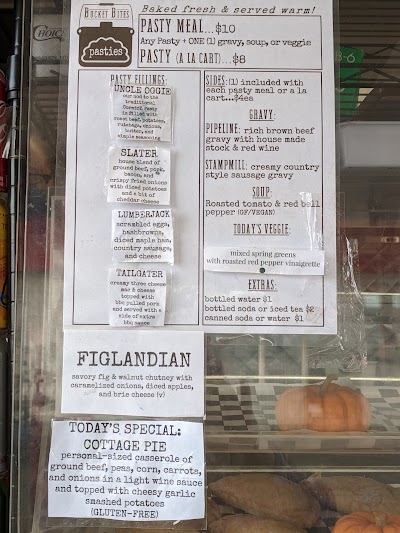 BUCKET BITES
pasties
Baked fresh & served warm!
PASTY MEAL...$10
Any Pasty + ONE (1) gravy, soup, or veggie
PASTY (A LA CART)...$8
PASTY FILLINGS:
UNCLE OGGIE
our nod to the
traditional
Cornish Pasty
is filled with
roast beef, potatoes,
rutabaga, onions,
butter, and
simple seasoning
SLATER
house blend of
ground beef, pork,
bacon, and
crispy fried onions
with diced potatoes
and a bit of
cheddar cheese
LUMBERJACK
scrambled eggs,
hashbrowns,
diced maple ham,
country sausage,
and cheese
TAILGATER
creamy three cheese
mac & cheese
topped with
bbq pulled pork
and served with a
side of extra
bbq sauce
SIDES:(1) included with
each pasty meal or a la
cart...$4ea
GRAVY:
PIPELINE: rich brown beef
gravy with house made
stock & red wine
STAMPMILL: creamy country
style sausage gravy
SOUP:
Roasted tomato & red bell
pepper (GF/VEGAN)
TODAY'S VEGGIE:
mixed spring greens
with roasted red pepper vinaigrette
EXTRAS:
bottled water $1
bottled soda or iced tea $2
canned soda or water $1
FIGLANDIAN
savory fig & walnut chutney with
caramelized onions, diced apples,
and brie cheese (v)
TODAY'S SPECIAL:
COTTAGE PIE
personal-sized casserole of
ground beef, peas, corn, carrots,
and onions in a light wine sauce
and topped with cheesy garlic
smashed potatoes
(GLUTEN-FREE)